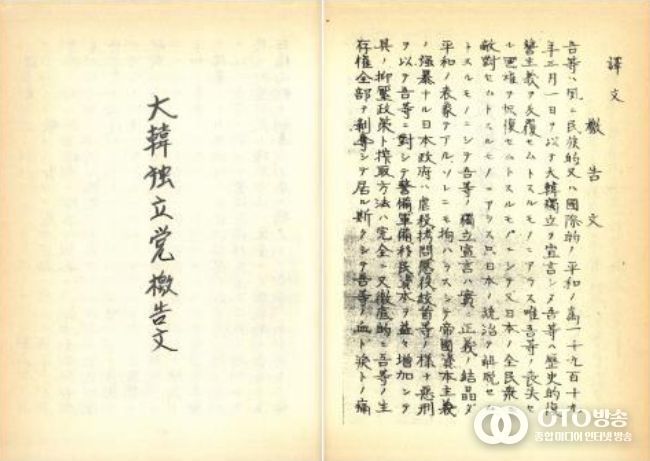 大韓独立党檄告文
譯文
檄告文
吾等ハ夙ニ民族的又ハ國際的ノ平和ノ爲一千九百十九
年三月一日ヲ以テ大韓獨立ヲ宣言シタ吾等ハ歴史的復
讐主義ヲ反覆セムトスルモノニアラス唯吾等ノ喪失セ
ヲ恢復セムトスルモノニシテ又日本ノ全民衆ニ
敵對セムトスルモノニアラス只日本ノ統治ヲ解脱セ
トスルモノニシテ吾等ノ獨立宣言ハ實ニ正義ノ結晶ダ
平和ノ表象テアルソレニモ拘ハラスシテ帝國資本主義
ノ強暴ナル日本政府ハ虐殺拷問懲役絞首等ノ様々惡刑
ヲ以テ吾等ニ對シテ警備軍備移民資本ヲ益々増加シテ
其ノ抑壓政策ト搾取方法ハ完全ニ又徹底的ニ吾等ノ生
存権全部ヲ剥奪シテ居ル斯クシテ吾等ノ血ト涙トノ痛
OTO방송
종합미디어 인터넷 방송